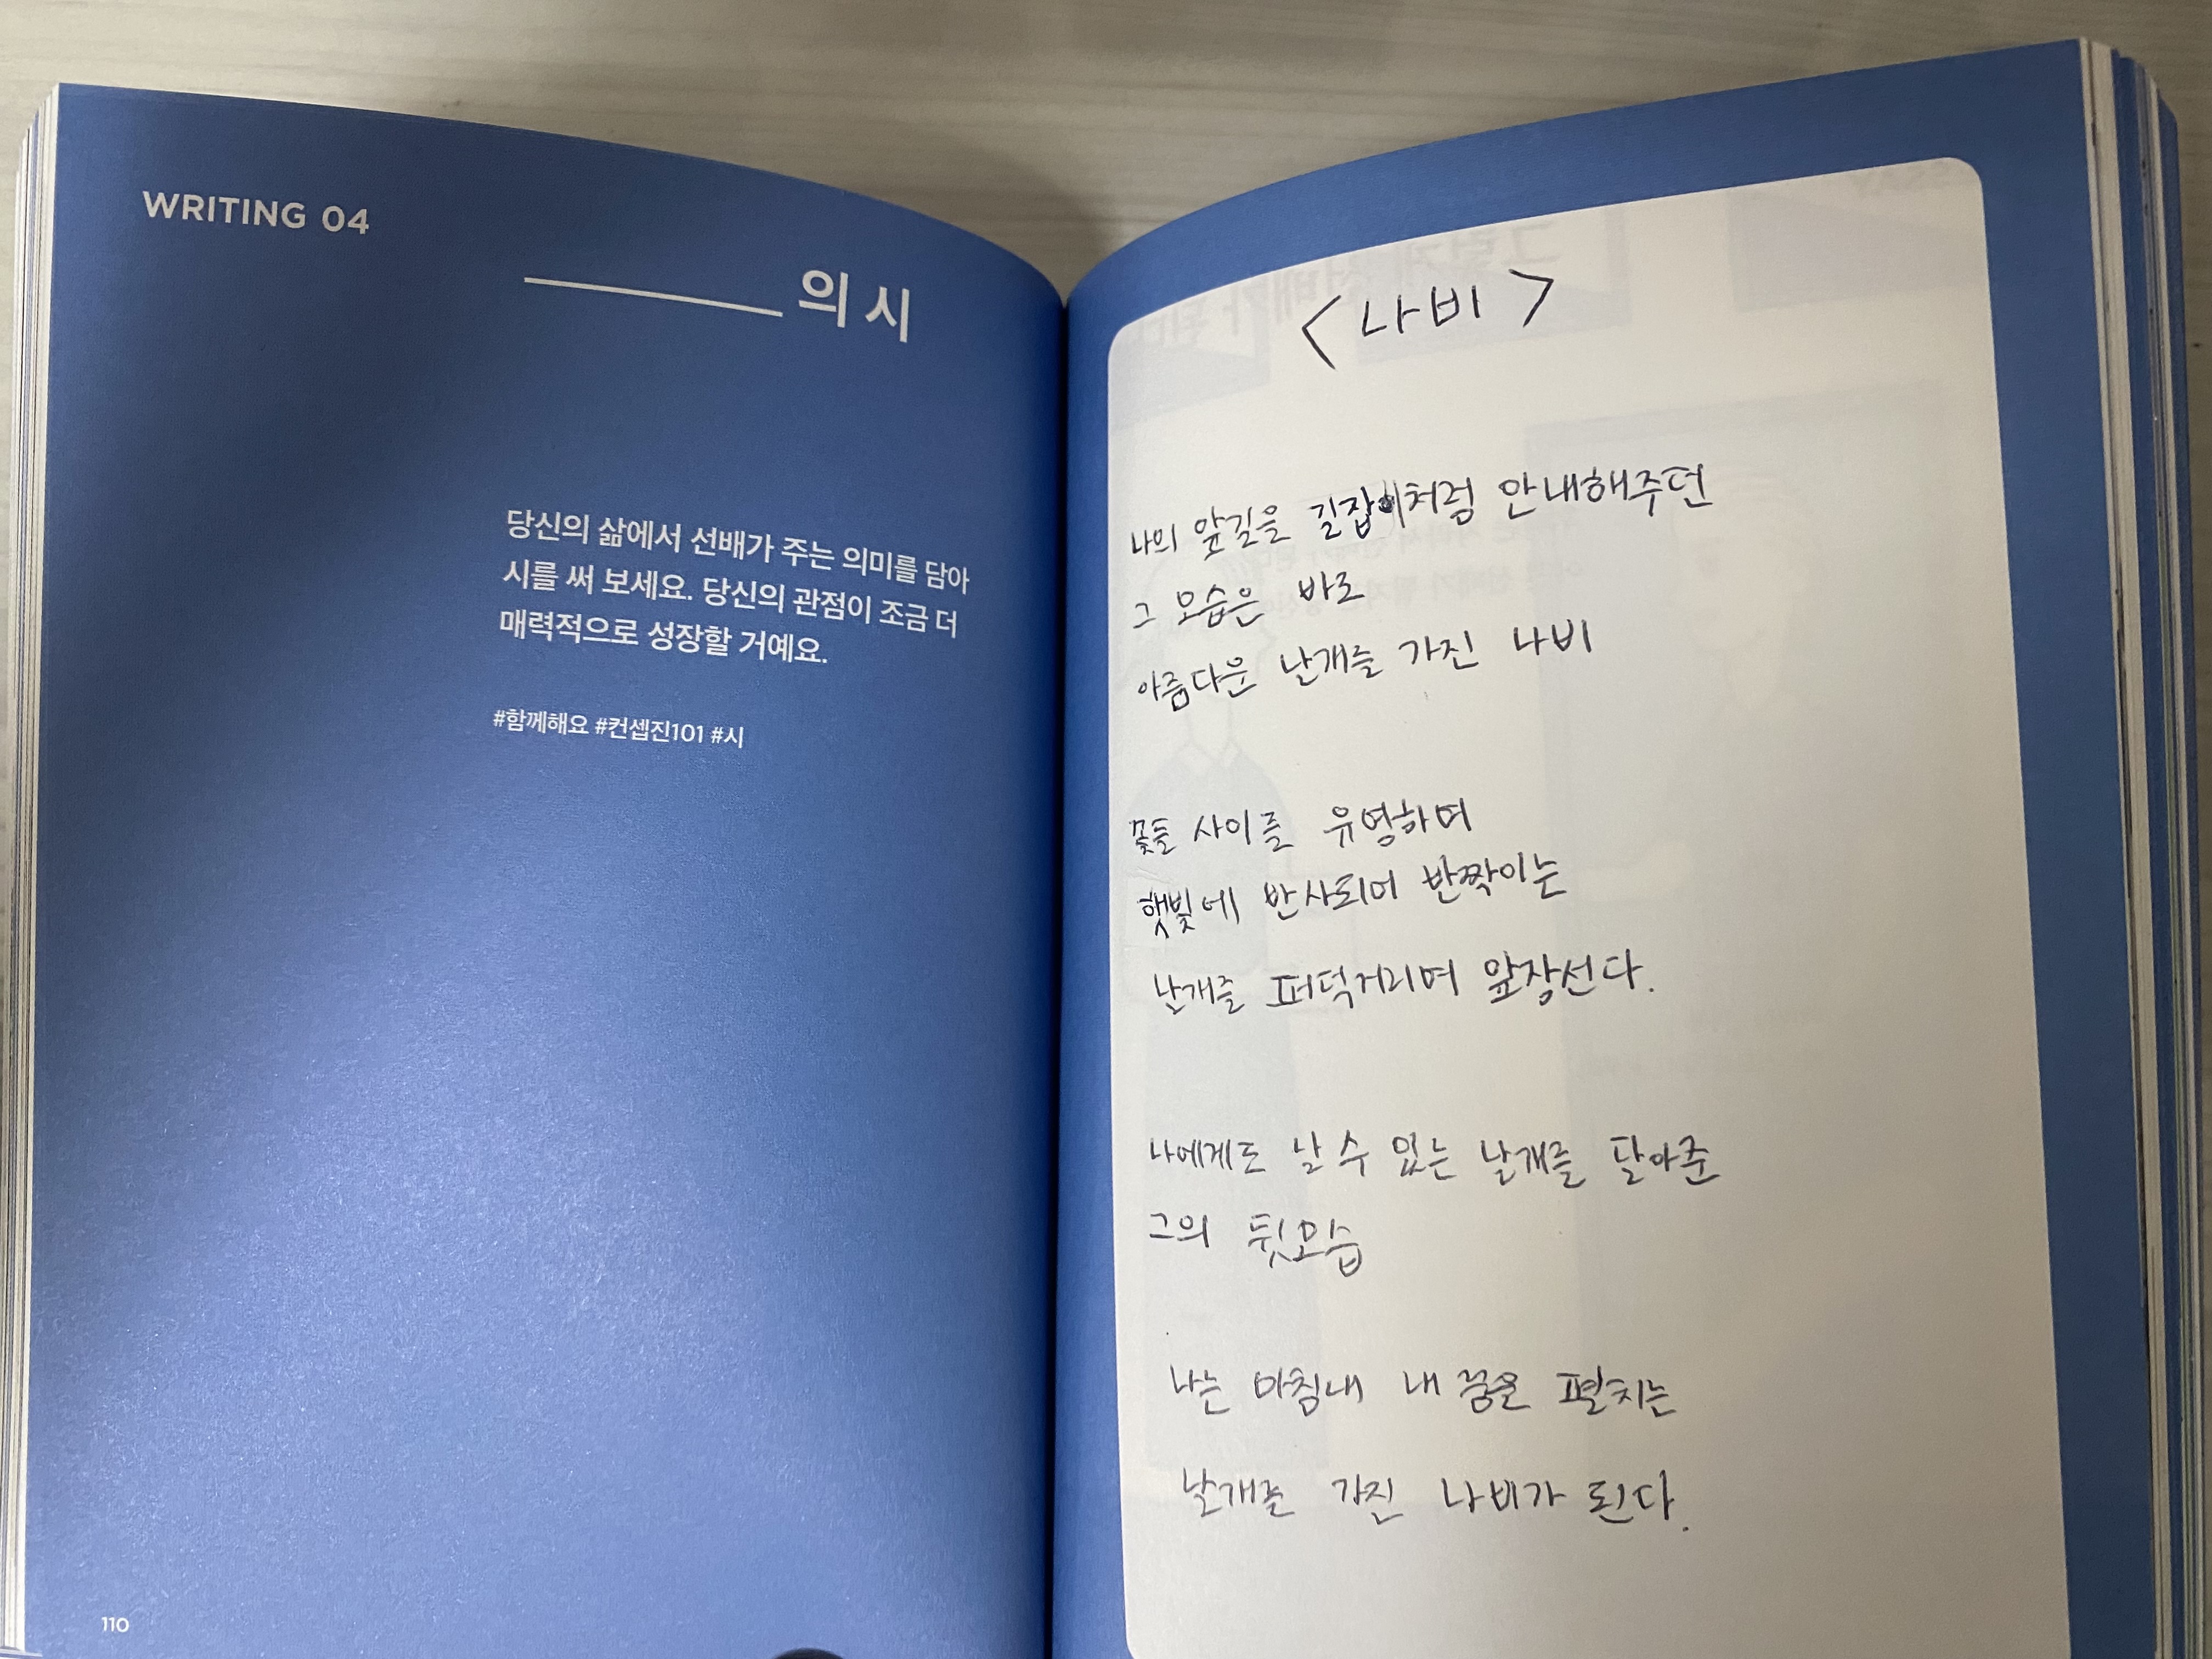 WRITING 04
의 시
당신의 삶에서 선배가 주는 의미를 담아
시를 써 보세요. 당신의 관점이 조금 더
매력적으로 성장할 거예요.
#함께해요 #컨셉진101 #시
110
<나비>
나의 앞길을 길잡이처럼 안내해주던
그 모습은 바로
아름다운 날개를 가진 나비
꽃들 사이를 유영하며
햇빛에 반사되어 반짝이는
날개를 퍼덕거리며 앞장선다.
나에게도 날 수 있는 날개를 달아준
그의 뒷모습
나는 마침내 내 꿈을 펼치는
날개를 가진 나비가 된다.